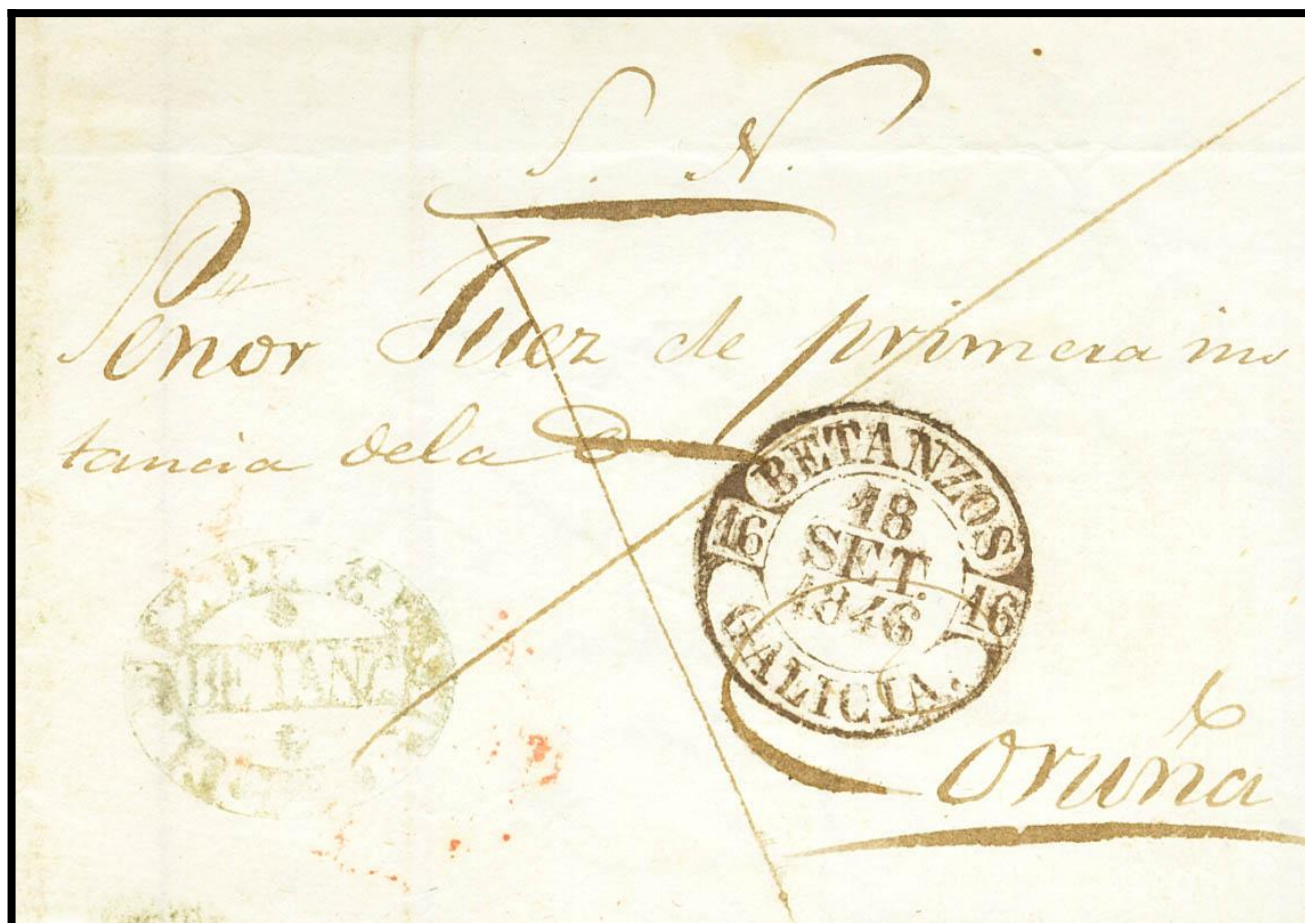 S. N.
Señor Juez de primera ins
tancia dela
BETANZOS
16 18 16
SET.
1846
GALICIA.
Coruña